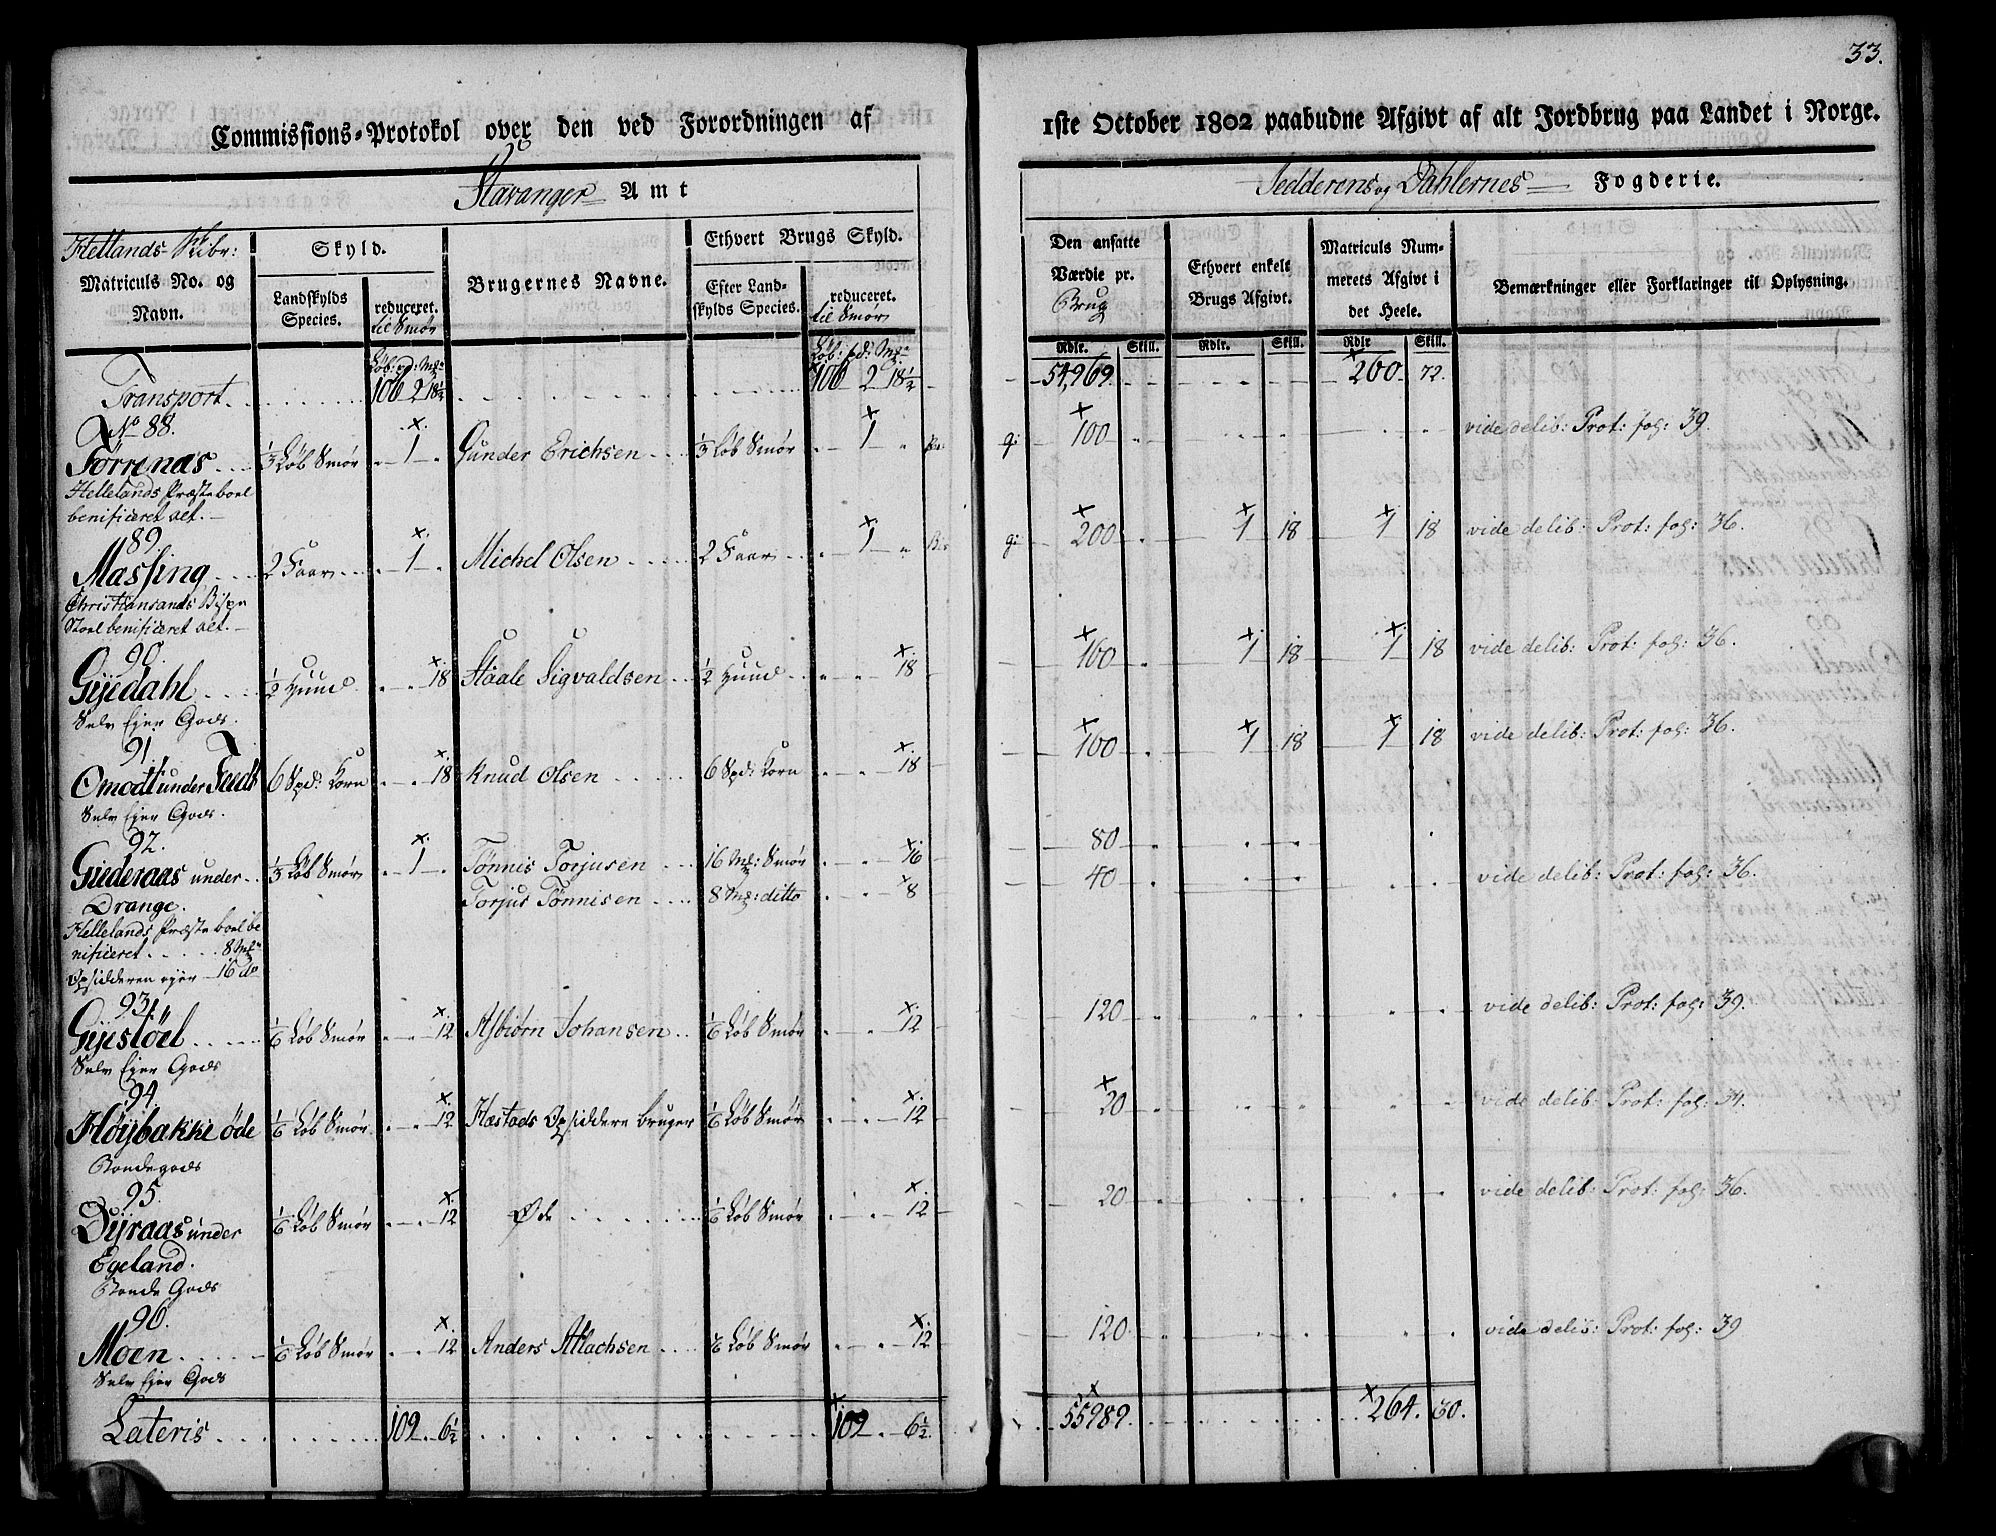 33.
Commissions-Protokol over den ved Forordningen af 1ste October 1802 paabudne Afgivt af alt Jordbrug paa Landet i Norge.
Stavanger Amt
Jedderens og Dahlernes Fogderie.
Hellands Skibr:
Matriculs No. og Navn.
Skyld.
Landskylds Species.
reduceret. til Smør
Brugernes Navne.
Ethvert Brugs Skyld.
Efter Landskylds Species.
reduceret. til Smør
Den ansatte Værdie pr. Brug
Ethvert enkelt Brugs Afgivt.
Matriculs Nummerets Afgivt i det Heele.
Bemærkninger eller Forklaringer til Oplysning.
Løb: pd: Mk
Løb: pd: Mk
Rdlr. Skill. Rdlr. Skill. Rdlr Skill.
Transport 106 2 18½ 106 2 18½ 54,969. 260. 72.
No 88.
Tørrenæs 1/3 Løb Smør 1 Gunder Erichsen 1/3 Løb Smør 1 100 vide delib: Prot: fol: 39.
Hellelands Præsteboel
benificeret alt.
89.
Massing 2 Faar 1 Michel Olsen 2 Faar 1 200 1 18 1 18 vide delib: Prot: fol: 36.
Christiansands Bispe
Stoel benificeret alt.
90.
Gijedahl ½ Huud 18 Staale Sigvaldsen ½ Huud 18 160 1 18 1 18 vide delib: Prot: fol: 36.
Selv Ejer Gods.
91.
Omodt under Feed 6 Spd: Korn 18 Knud Olsen 6 Spd: Korn 18 160 1 18 1 18 vide delib: Prot: fol: 36.
Selv Ejer Gods.
92.
Giederaas under 1/3 Løb Smør 1 Tønnis Torjusen 16 Mk: Smør 16 80
Drange. Torjus Tønnisen 8 Mk: ditto 8 40 vide delib: Prot: fol: 36.
Hellelands Præsteboel be
nificeret 8 Mk
Opsidderen ejer 16 do
93.
Gijestöel 1/6 Løb Smør 12 Asbiørn Johansen 1/6 Løb Smør 12 120 vide delib: Prot: fol: 39.
Selv Ejer Gods
94.
Høybakke öde 1/6 Løb Smør 12 Hæstads Opsiddere bruger 1/6 Løb Smør 12 20 vide delib: Prot: fol: 34.
Bondegods
95.
Dyraas under 1/6 Løb Smør 12 Øde 1/6 Løb Smør 12 20 vide delib: Prot: fol: 36.
Egeland.
Bonde Gods
96.
Moen 1/6 Løb Smør 12 Anders Atlachsen 1/6 Løb Smør 12 120 vide delib: Prot: fol: 39
Selv Ejer Gods
Lateris 109 6½ 109 6½ 55989. 264. 30.